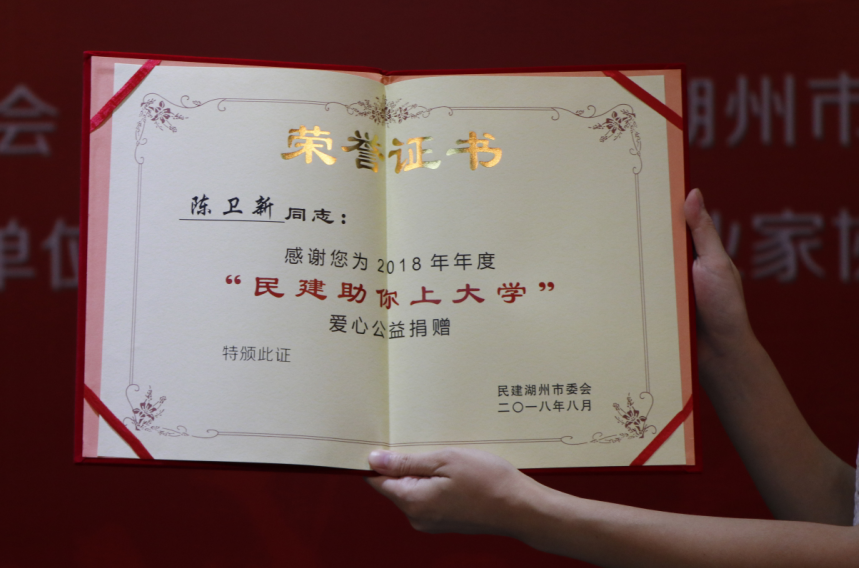 荣誉证书
陈卫新同志：
感谢您为2018年年度
“民建助你上大学”
爱心公益捐赠
特颁此证
民建湖州市委会
二〇一八年八月
会
湖州市
单位
业家协